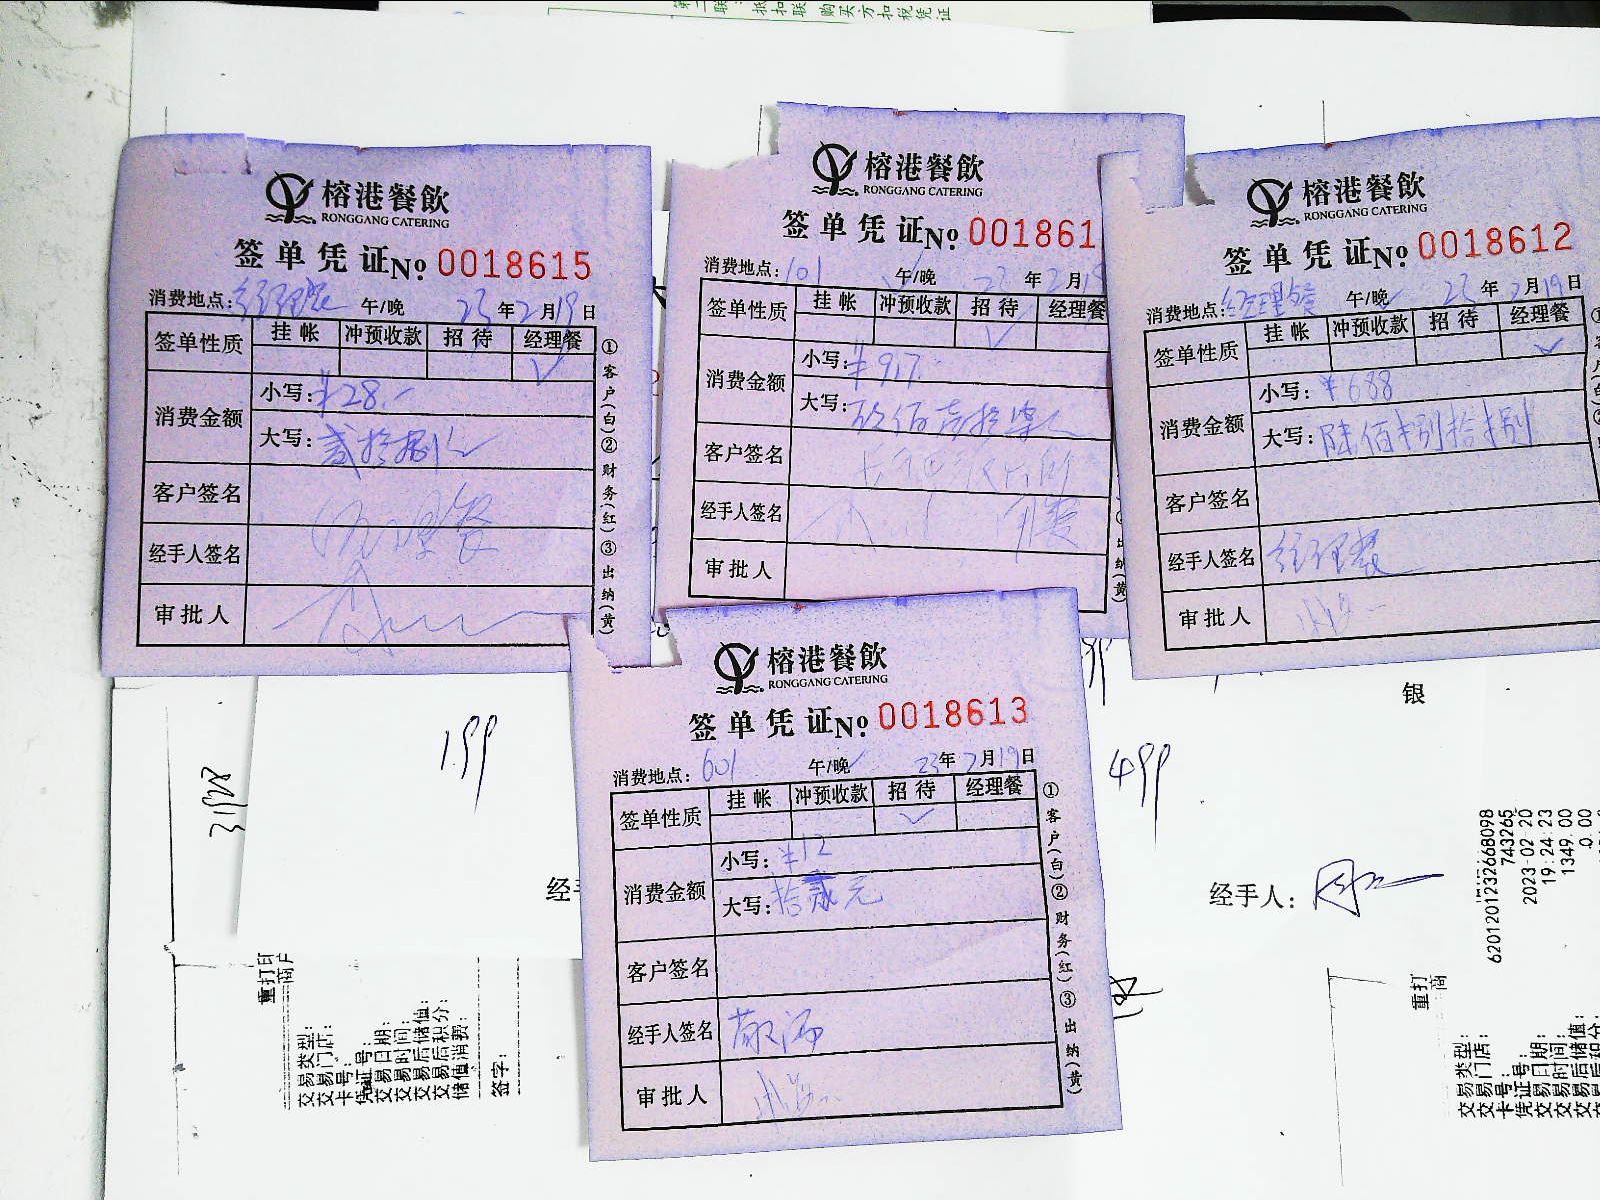 第二联：抵扣联 购买方扣税凭证
榕港餐飲
RONGGANG CATERING
签单凭证№ 0018615
消费地点：经理餐 午/晚 23年2月19日
签单性质 挂帐 冲预收款 招待 经理餐
✓
消费金额 小写：¥28.-
大写：贰拾捌元
客户签名
经手人签名
审批人
①客户(白)②财务(红)③出纳(黄)
榕港餐飲
RONGGANG CATERING
签单凭证№ 001861
消费地点：101 午/晚 23年2月19
签单性质 挂帐 冲预收款 招待 经理餐
✓
消费金额 小写：¥917.-
大写：玖佰壹拾柒元
客户签名
经手人签名
审批人
出纳(黄)
榕港餐飲
RONGGANG CATERING
签单凭证№ 0018612
消费地点：经理餐 午/晚 23年2月19日
签单性质 挂帐 冲预收款 招待 经理餐
✓
消费金额 小写：¥688
大写：陆佰捌拾捌
客户签名
经手人签名 经理餐
审批人
榕港餐飲
RONGGANG CATERING
签单凭证№ 0018613
消费地点：601 午/晚 23年2月19日
签单性质 挂帐 冲预收款 招待 经理餐
✓
消费金额 小写：¥12
大写：拾贰元
客户签名
经手人签名
审批人
①客户(白)②财务(红)③出纳(黄)
199
499
银
经手
经手人：
重打印
商户
交易类型：
交易门店：
卡号：
凭证号：
交易日期：
交易时间：
交易后储值：
交易后积分：
储值消费：
签字：
6201201232668098
743265
2023-02-20
19:24:23
1349.00
0.00
重打
商
交易类型：
交易门店：
卡号：
凭证号：
交易日期：
交易时间：
交易后储值：
交易后积分：